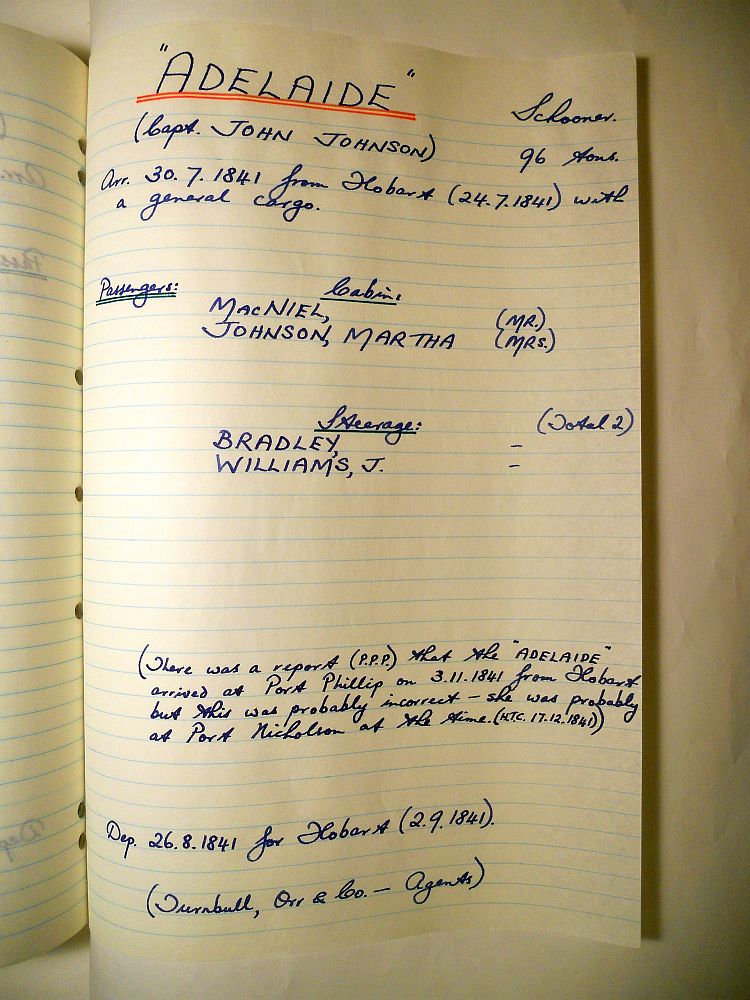 "ADELAIDE"
Schooner.
(Capt. JOHN JOHNSON)
96 tons.
Arr. 30.7.1841 from Hobart (24.7.1841) with
a general cargo.
Passengers: Cabin:
MACNIEL, (MR.)
JOHNSON, MARTHA (MRS.)
Steerage: (Total 2)
BRADLEY, -
WILLIAMS, J. -
(There was a report (P.P.P.) that the "ADELAIDE"
arrived at Port Phillip on 3.11.1841 from Hobart
but this was probably incorrect - she was probably
at Port Nicholson at the time. (H.T.C. 17.12.1841))
Dep. 26.8.1841 for Hobart (2.9.1841).
(Turnbull, Orr & Co. - Agents)